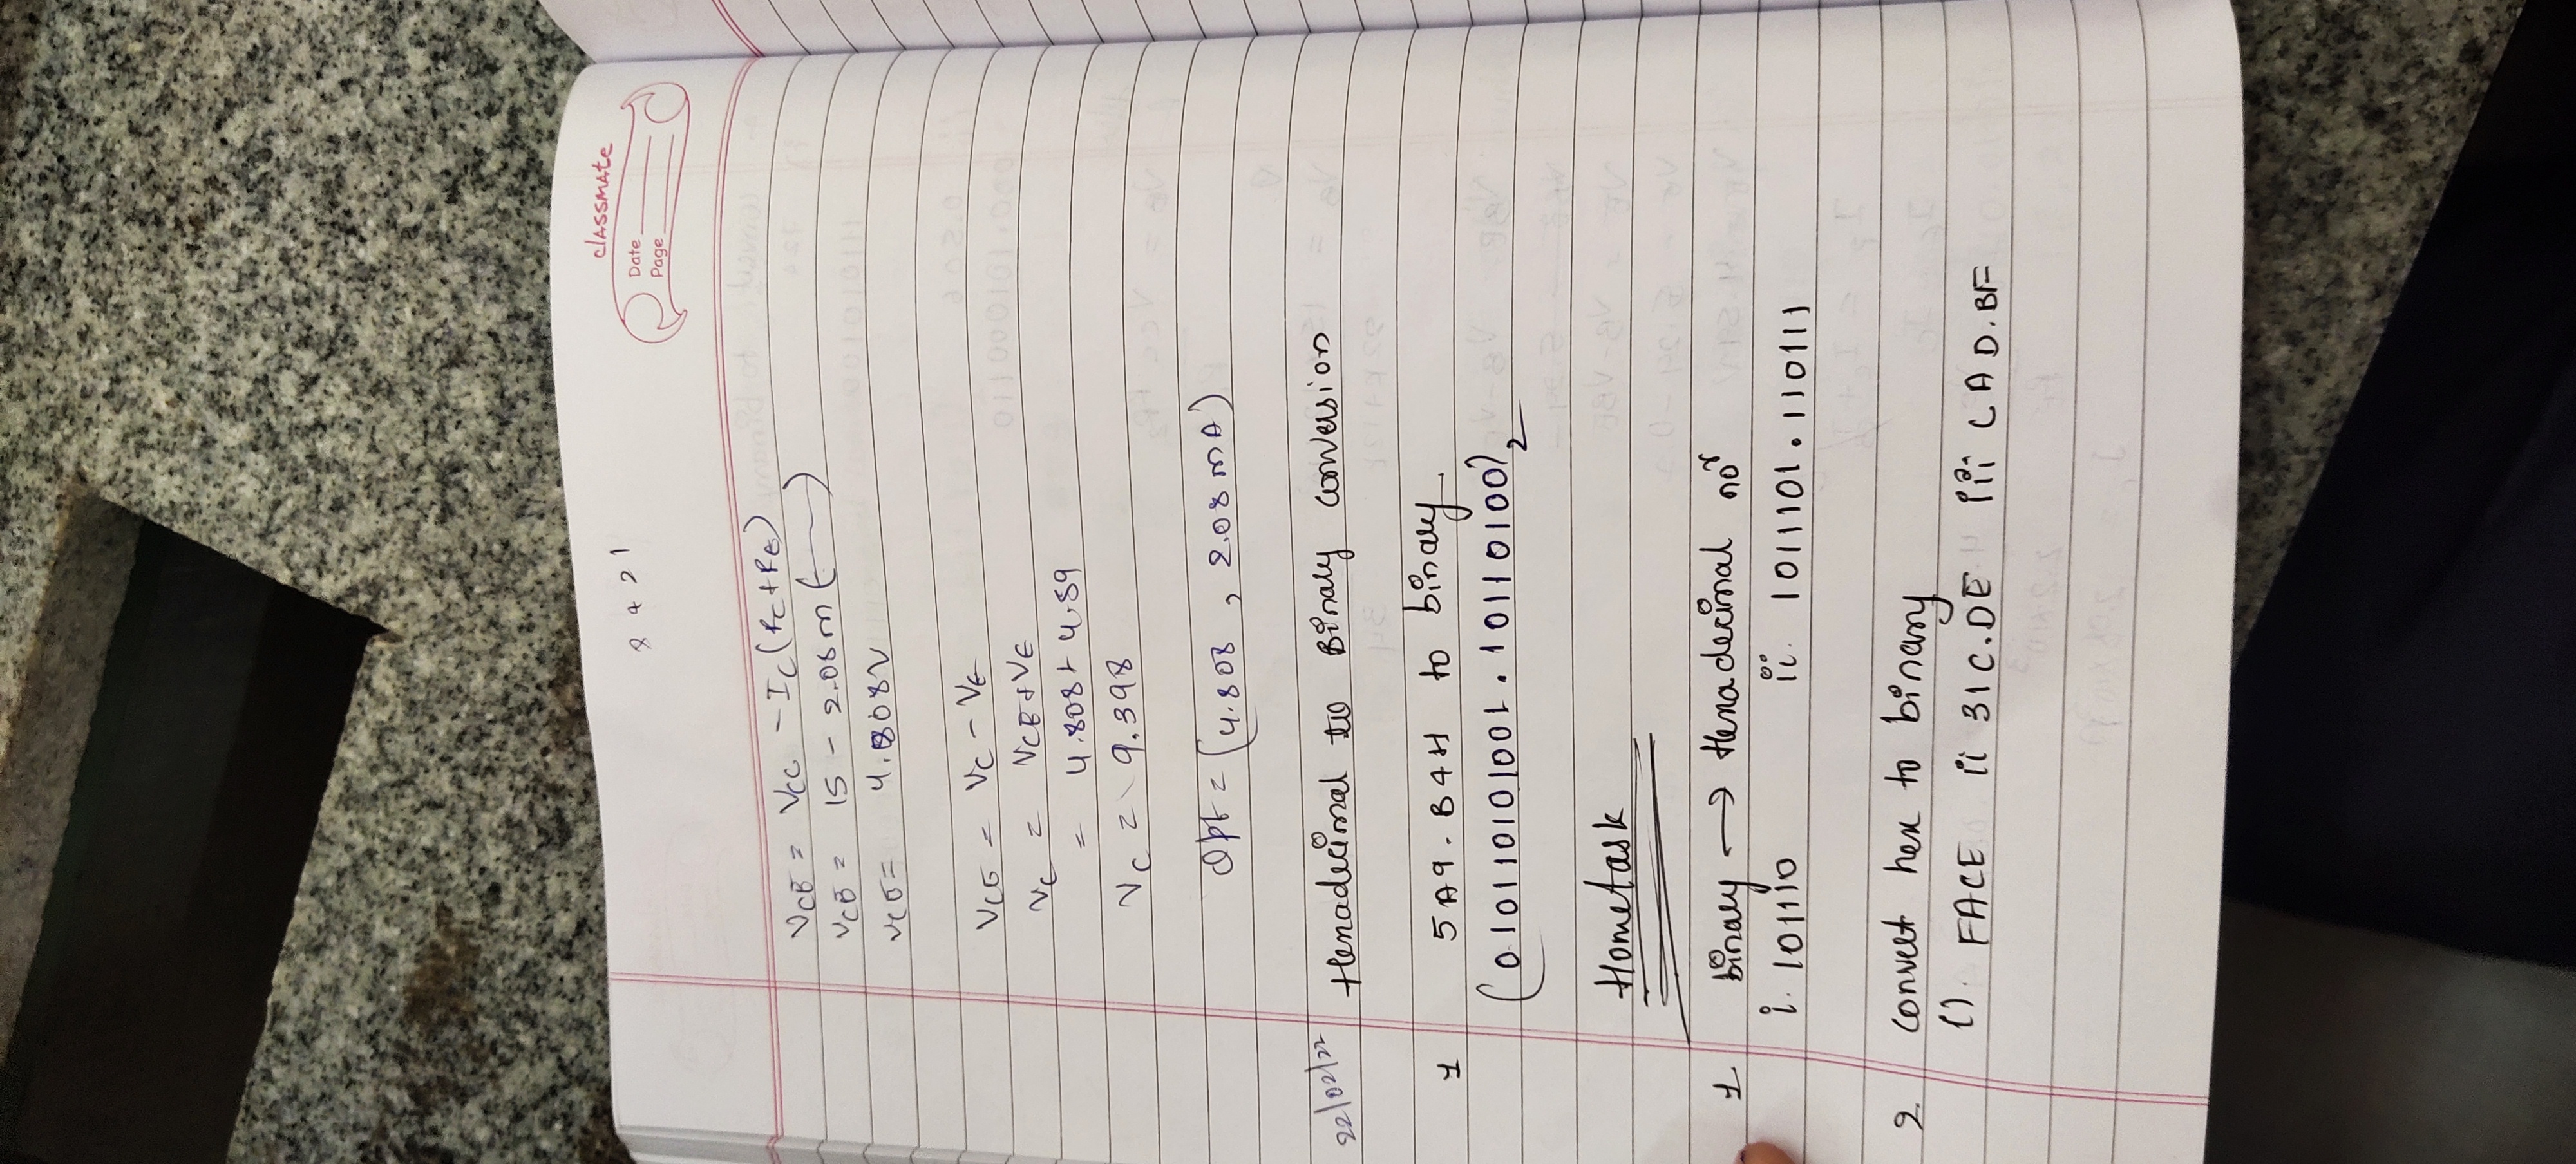 8 4 2 1
classmate
Date
Page
VCE = VCC - IC (RC+RE)
VCE = 15 - 2.08m ( )
VCE = 4.808V
VCE = VC - VE
VC = VCE + VE
= 4.808 + 4.59
VC = 9.398
Qpt = (4.808 , 2.08 mA)
22/02/22
Hexadecimal to Binary conversion
1 5A9.B4H to binary
(010110101001.10110100)2
Hometask
1 binary → Hexadecimal nor
i. 101110 ii. 1011101.110111
2. convert hex to binary
(). FACE ii 31C.DE iii CAD.BF